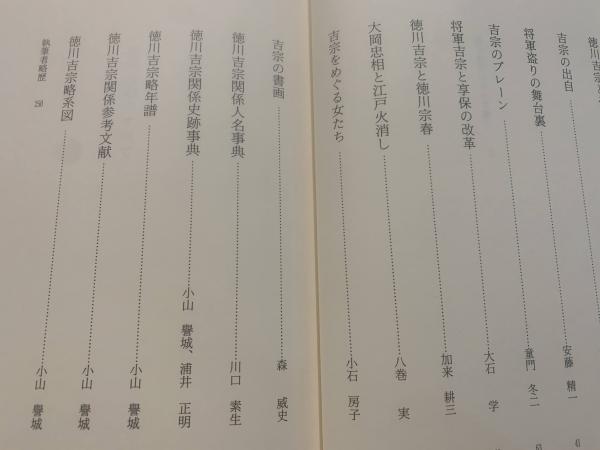 徳川吉宗
吉宗の出自 安藤 精一
将軍盗りの舞台裏 童門 冬二
吉宗のブレーン 大石 学
将軍吉宗と享保の改革 加来 耕三
徳川吉宗と徳川宗春 八巻 実
大岡忠相と江戸火消し 小石 房子
吉宗をめぐる女たち
吉宗の書画 森 威史
徳川吉宗関係人名事典 川口 素生
徳川吉宗関係史跡事典 小山 譽城、浦井 正明
徳川吉宗略年譜 小山 譽城
徳川吉宗関係参考文献 小山 譽城
徳川吉宗略系図 小山 譽城
執筆者略歴 250